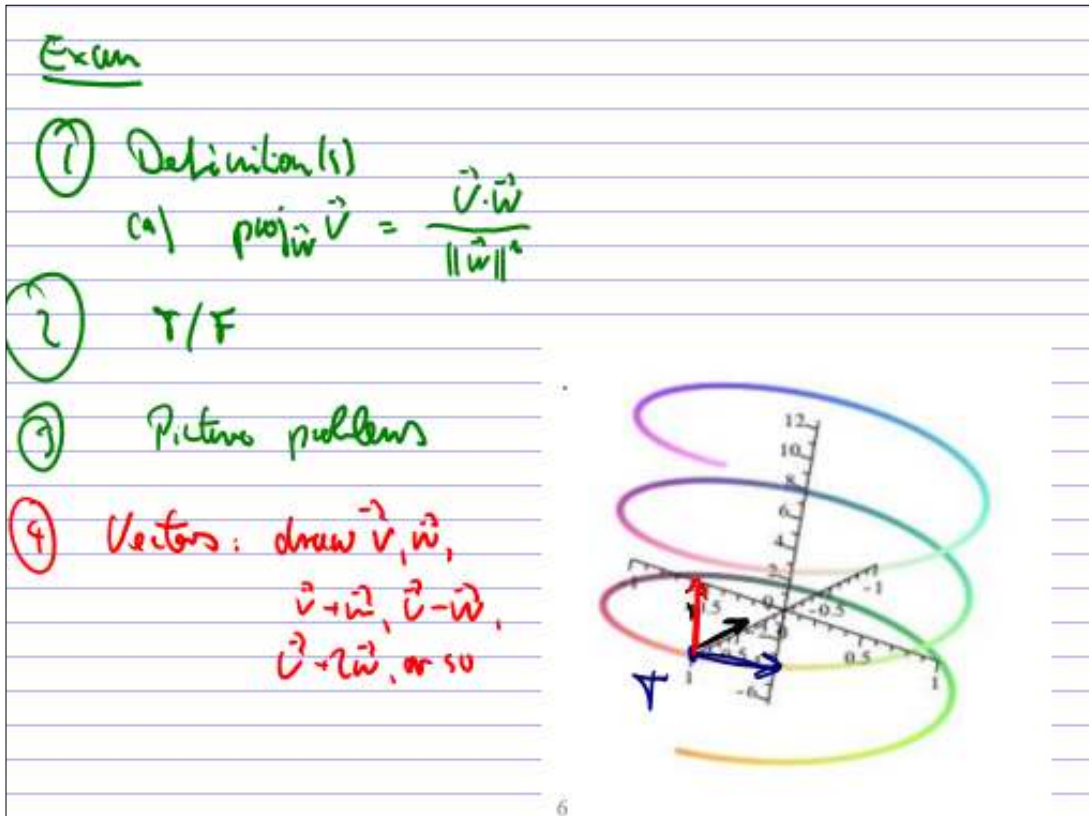 Exam
① Definition(s)
(a) proj_{\vec{w}} \vec{v} = \frac{\vec{v} \cdot \vec{w}}{\|\vec{w}\|^2}
② T/F
③ Picture problems
④ Vectors: draw \vec{v}, \vec{w},
\vec{v}+\vec{w}, \vec{v}-\vec{w},
\vec{v}+2\vec{w}, or so
12
10
8
6
4
2
0
-6
-1
-0.5
0.5
1
1
T
6